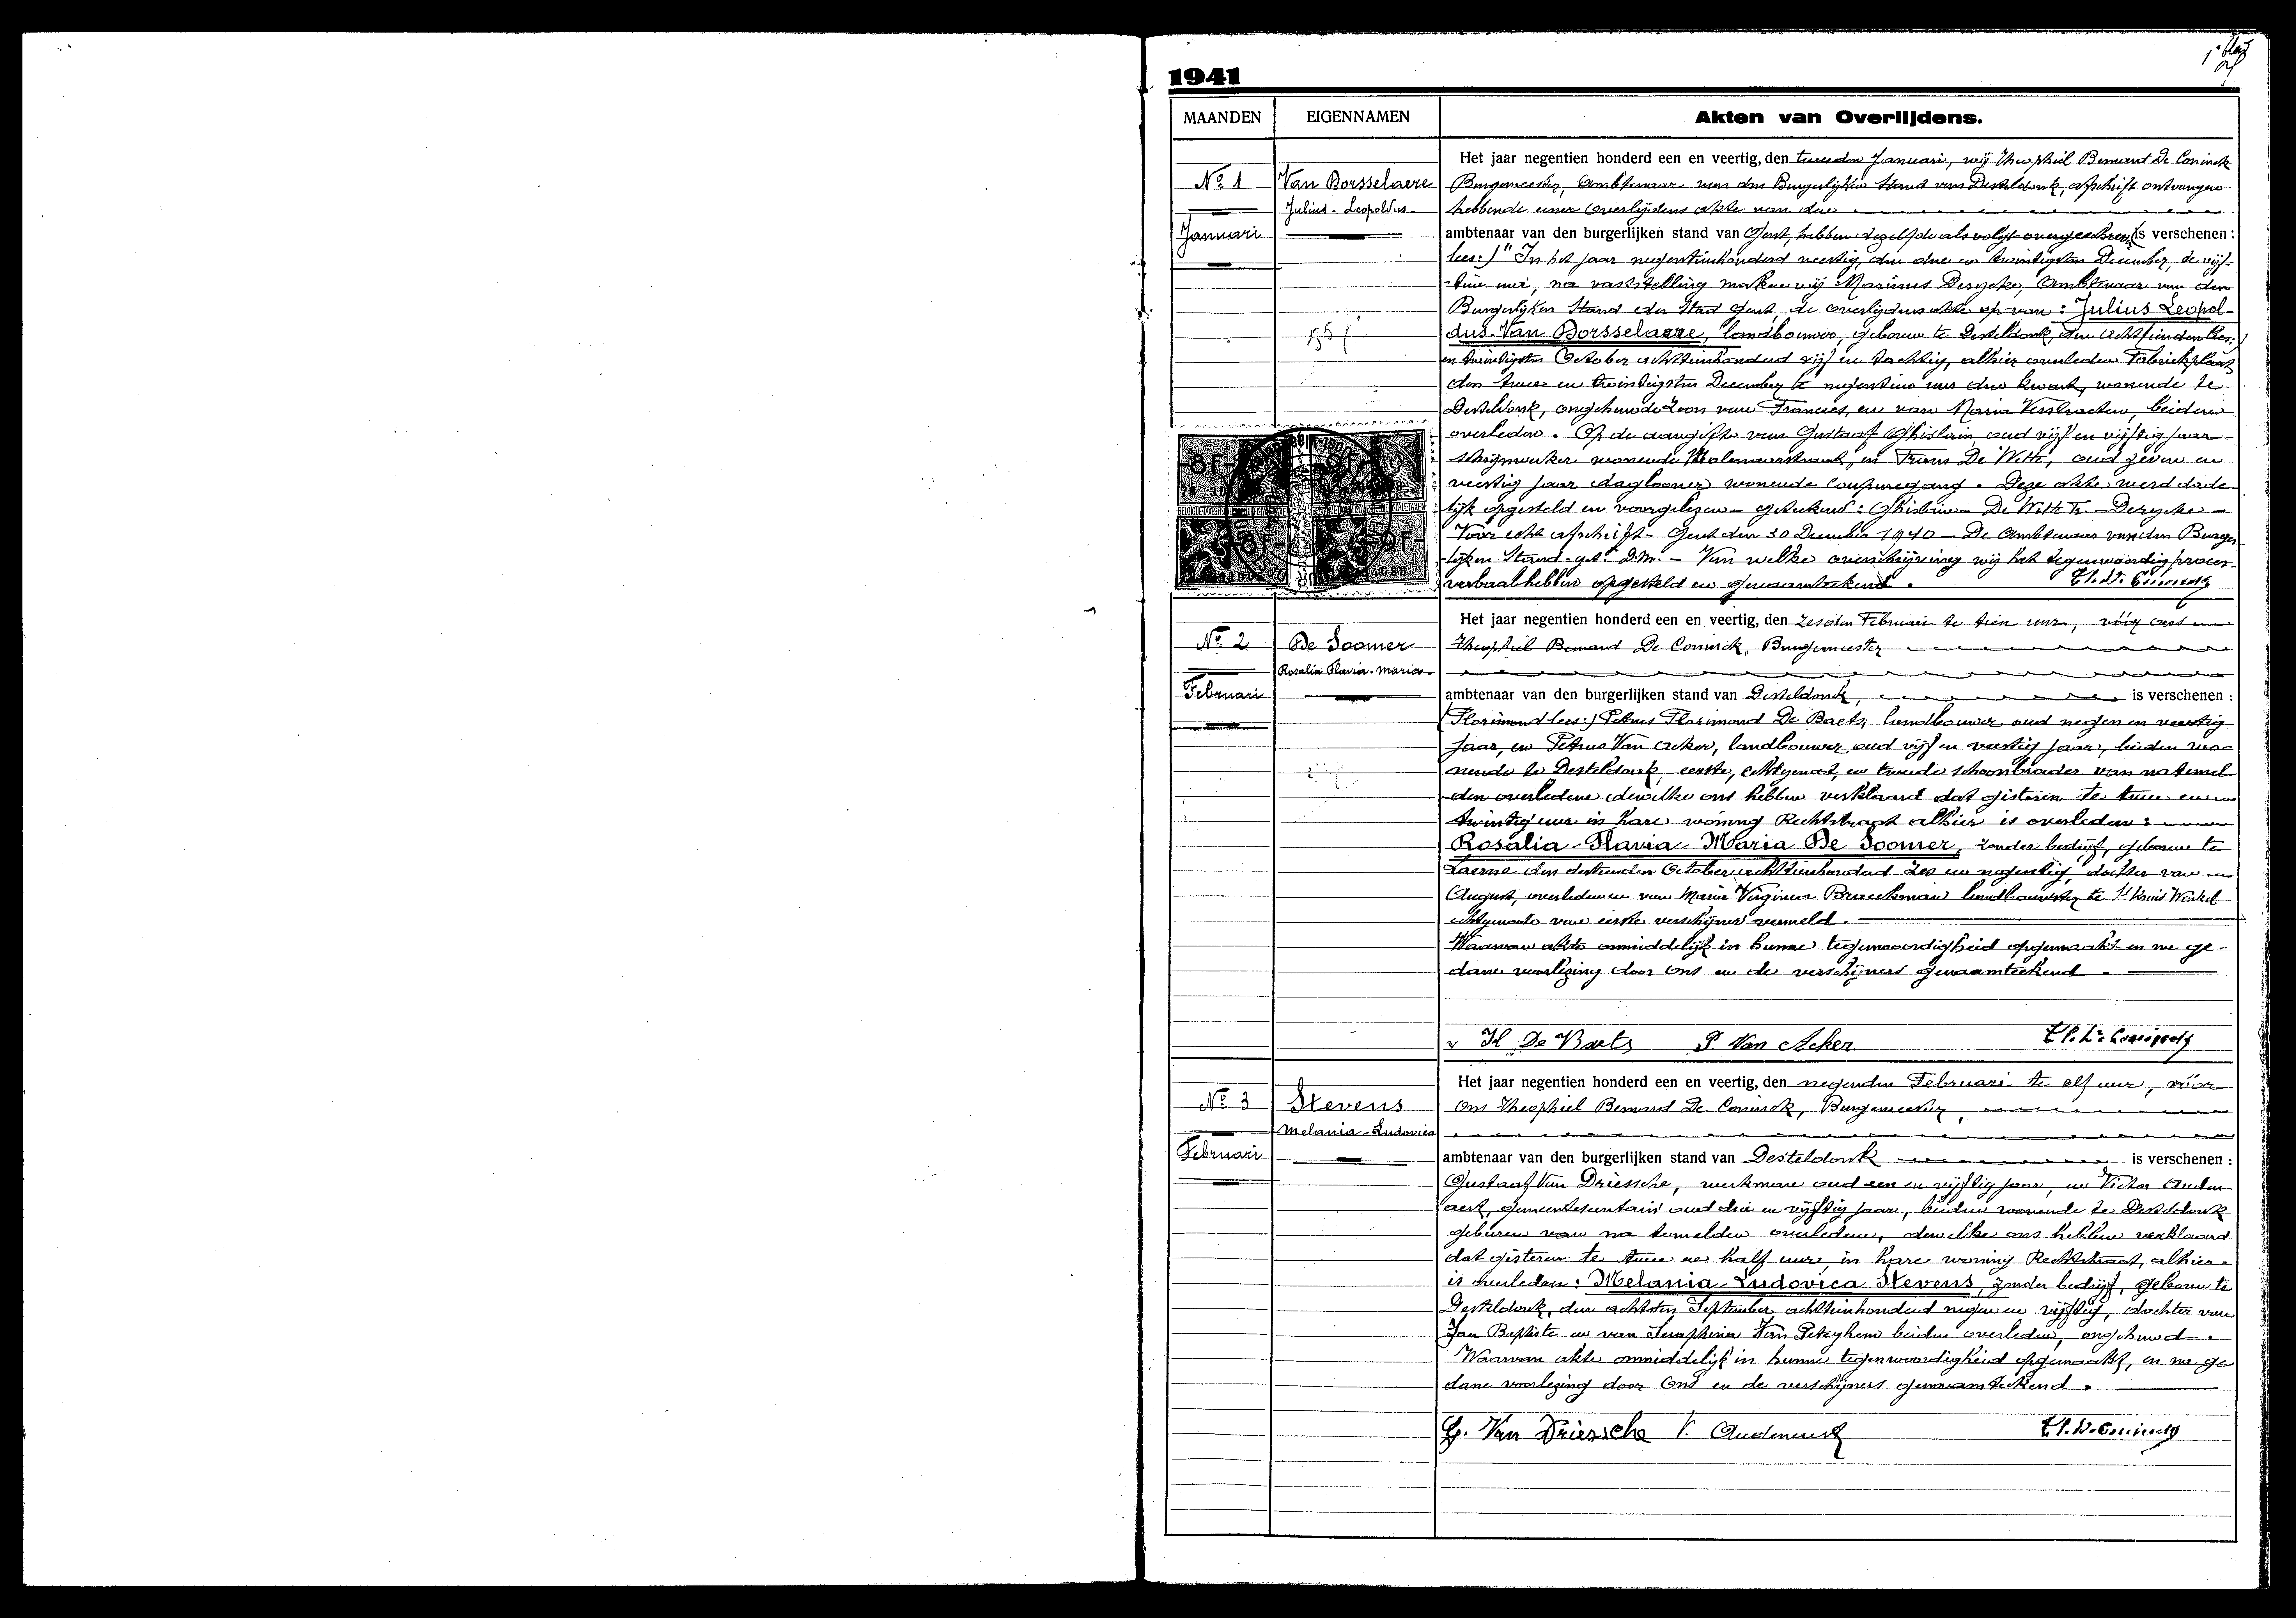 1e blad
1941
MAANDEN EIGENNAMEN Akten van Overlijdens.
No 1
Januari
Van Borsselaere
Julius - Leopoldus -
55
Het jaar negentien honderd een en veertig, den tweeden Januari, wij Theophiel Bernard De Coninck
Burgemeester, Ambtenaar van den Burgerlijken Stand van Desteldonk, afschrift ontvangen
hebbende eener overlijdens akte van den
ambtenaar van den burgerlijken stand van Gent, hebben dezelfde als volgt overgeschreven (is verschenen :
lees:) "In het jaar negentienhonderd veertig, den drie en twintigsten December, te vijf-
-tien uur, na vaststelling maken wij Marinus Derycke, Ambtenaar van den
Burgerlijken Stand der Stad Gent, de overlijdens akte op van : Julius Leopol-
dus Van Borsselaere, landbouwer, geboren te Desteldonk, den achttienden lees:)
en twintigsten October achttienhonderd vijf en tachtig, alhier overleden Fabriekplaats
den twee en twintigsten December te negentien uur drie kwart, wonende te
Desteldonk, ongehuwde zoon van Francies, en van Maria Verstraeten, beiden
overleden. Op de aangifte van Gustaaf Ghislain, oud vijf en vijftig jaar
schrijnwerker wonende Molenaarstraat, en Frans De Witte, oud zeven en
veertig jaar dagloner wonende Coupuregang. Deze akte werd dade-
lijk opgesteld en voorgelezen - getekend : Ghislain - De Witte Fr. - Derycke -
Voor echt afschrift - Gent den 30 December 1940 - De Ambtenaar van den Burger-
-lijken Stand - get. D.M. - Van welke overschrijving wij het tegenwoordig proces-
verbaal hebben opgesteld en genaamtekend. Th. De Coninck
No 2
Februari
De Soomer
Rosalia Flavia - Maria -
Het jaar negentien honderd een en veertig, den zesden Februari te tien uur, vóór ons
Theophiel Bernard De Coninck, Burgemeester
ambtenaar van den burgerlijken stand van Desteldonk, is verschenen :
(Florimond lees:) Petrus Florimond De Baets, landbouwer oud negen en veertig
jaar, en Petrus Van Acker, landbouwer oud vijf en veertig jaar, beiden wo-
nende te Desteldonk, eerste, echtgenoot, en tweede schoonbroeder van natemel-
den overledene dewelke ons hebben verklaard dat gisteren te twee en
twintig uur in hare woning Rechtstraat alhier is overleden :
Rosalia - Flavia - Maria De Soomer, zonder bedrijf, geboren te
Laerne den dertienden October achttienhonderd zes en negentig, dochter van
August, overleden en van Maria Virginia Braeckman landbouwster te St Kruis Winkel
echtgenoote van eerste verschijner vermeld.
Waarvan akte onmiddelijk in hunne tegenwoordigheid opgemaakt en na ge-
dane voorlezing door Ons en de verschijners genaamteekend.
Fl De Baets P. Van Acker Th. De Coninck
No 3
Februari
Stevens
Melania - Ludovica
Het jaar negentien honderd een en veertig, den negenden Februari te elf uur, vóór
Ons Theophiel Bernard De Coninck, Burgemeester,
ambtenaar van den burgerlijken stand van Desteldonk is verschenen :
Gustaaf Van Driessche, werkman oud een en vijftig jaar, en Victor Auden-
aert, gemeentesecretaris oud drie en vijftig jaar, beiden wonende te Desteldonk
geburen van na temelden overledene, dewelke ons hebben verklaard
dat gisteren te twee en half uur, in hare woning Rechtstraat, alhier
is overleden : Melania Ludovica Stevens, zonder bedrijf, geboren te
Desteldonk, den achtsten September achttienhonderd negen en vijftig, dochter van
Jan Baptiste en van Seraphina Van Peteghem beiden overleden, ongehuwd.
Waarvan akte onmiddelijk in hunne tegenwoordigheid opgemaakt, en na ge
dane voorlezing door Ons en de verschijners genaamteekend.
G. Van Driessche V. Audenaert Th. De Coninck